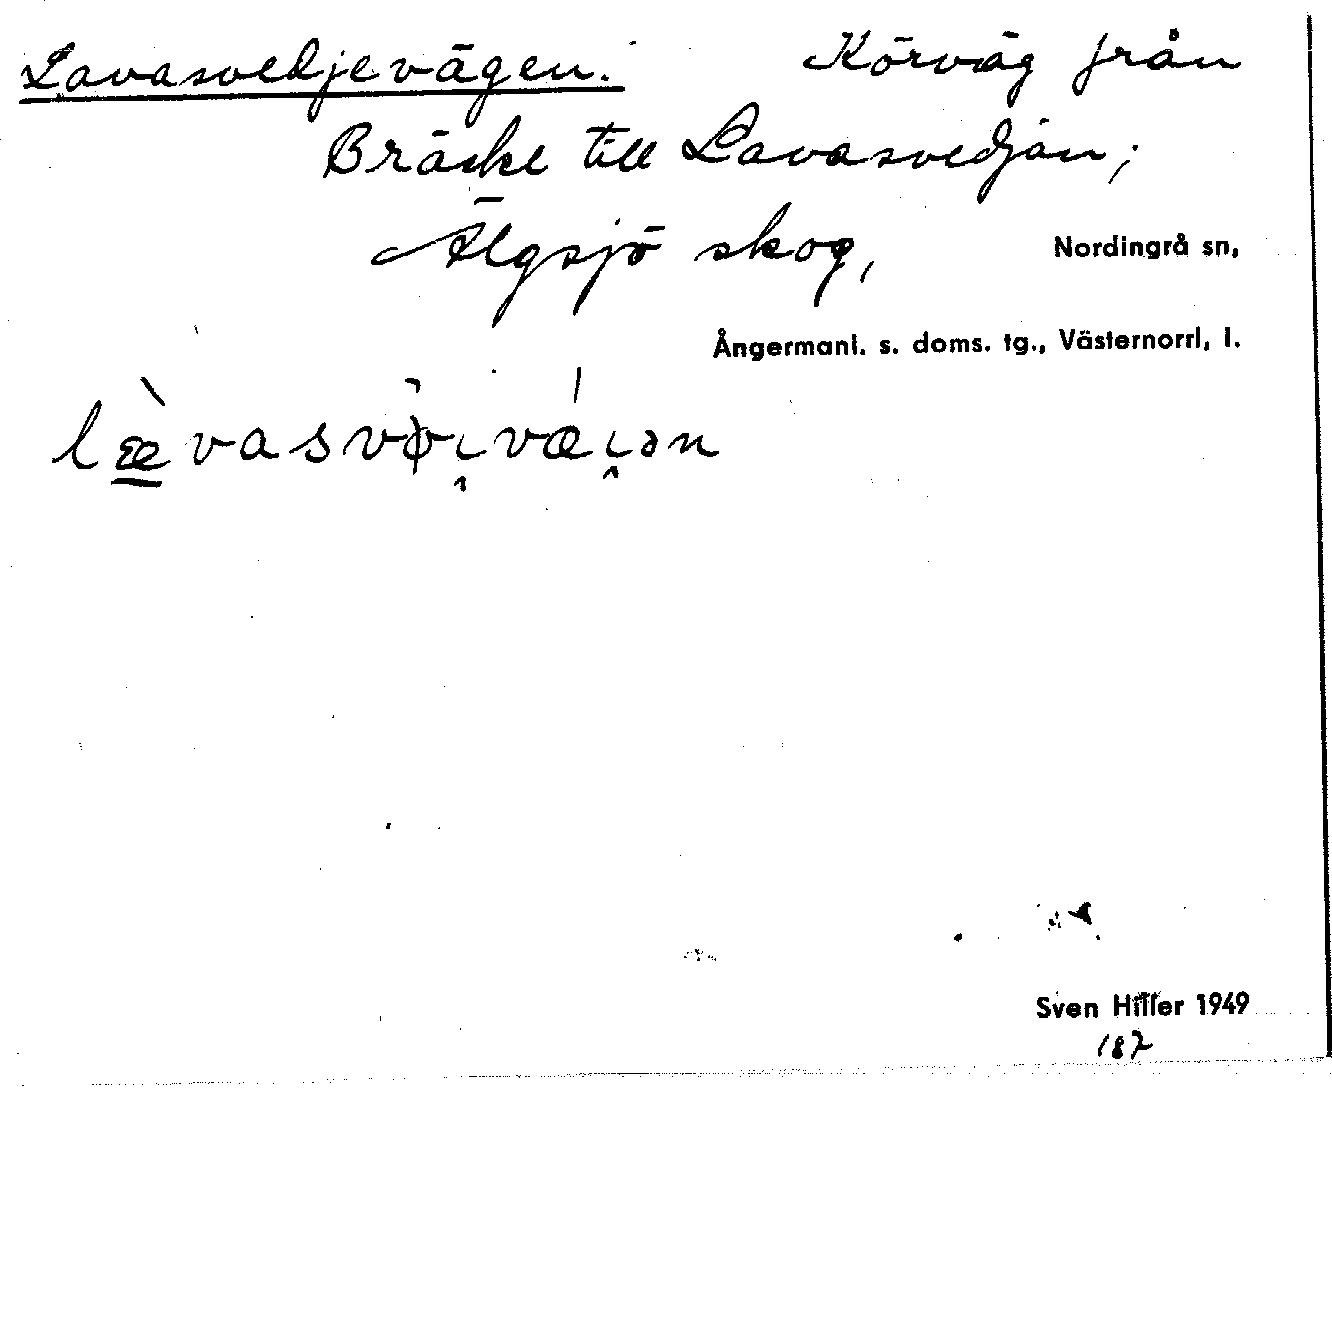 Lavasvedjevägen. Körväg från
Bräcke till Lavasvedjan;
Älgsjö skog,
Nordingrå sn,
Ångermanl. s. doms. tg., Västernorrl. l.
Sven Hiller 1949
187